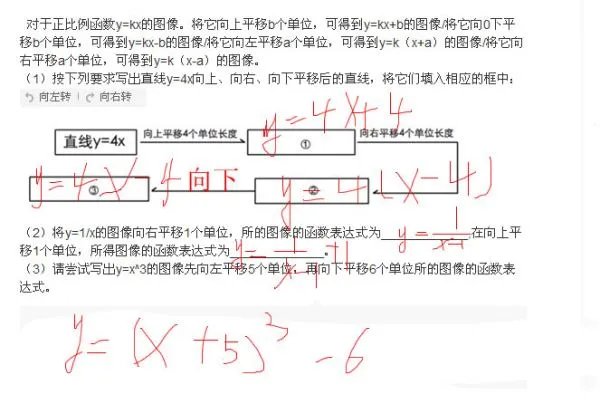 对于正比例函数y=kx的图像。将它向上平移b个单位，可得到y=kx+b的图像/将它向0下平
移b个单位，可得到y=kx-b的图像/将它向左平移a个单位，可得到y=k（x+a）的图像/将它向
右平移a个单位，可得到y=k（x-a）的图像。
（1）按下列要求写出直线y=4x向上、向右、向下平移后的直线，将它们填入相应的框中：
向左转 | 向右转
y=4x+4
直线y=4x 向上平移4个单位长度 ① 向右平移4个单位长度
y=4x-4 ③ 向下 y=4(x-4) ②
（2）将y=1/x的图像向右平移1个单位，所的图像的函数表达式为 y=1/x-1 ,在向上平
移1个单位，所得图像的函数表达式为 y=1/x-1+1 。
（3）请尝试写出y=x^3的图像先向左平移5个单位，再向下平移6个单位所的图像的函数表
达式。
y=(x+5)³-6